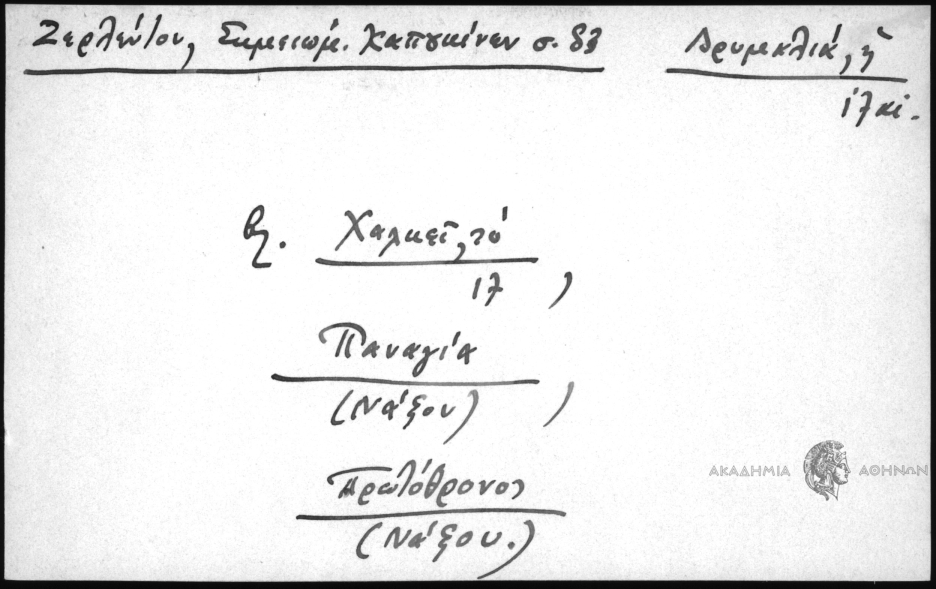 Ζερλέντου, Σημειώμ. Καπουκίνων σ. 83
Δρυμαλιά, ἡ
Χαλκεῖ, τό
,
Παναγία
(Νάξου) ,
Πρωτόθρονος
(Νάξου.)
ΑΚΑΔΗΜΙΑ ΑΘΗΝΩΝ